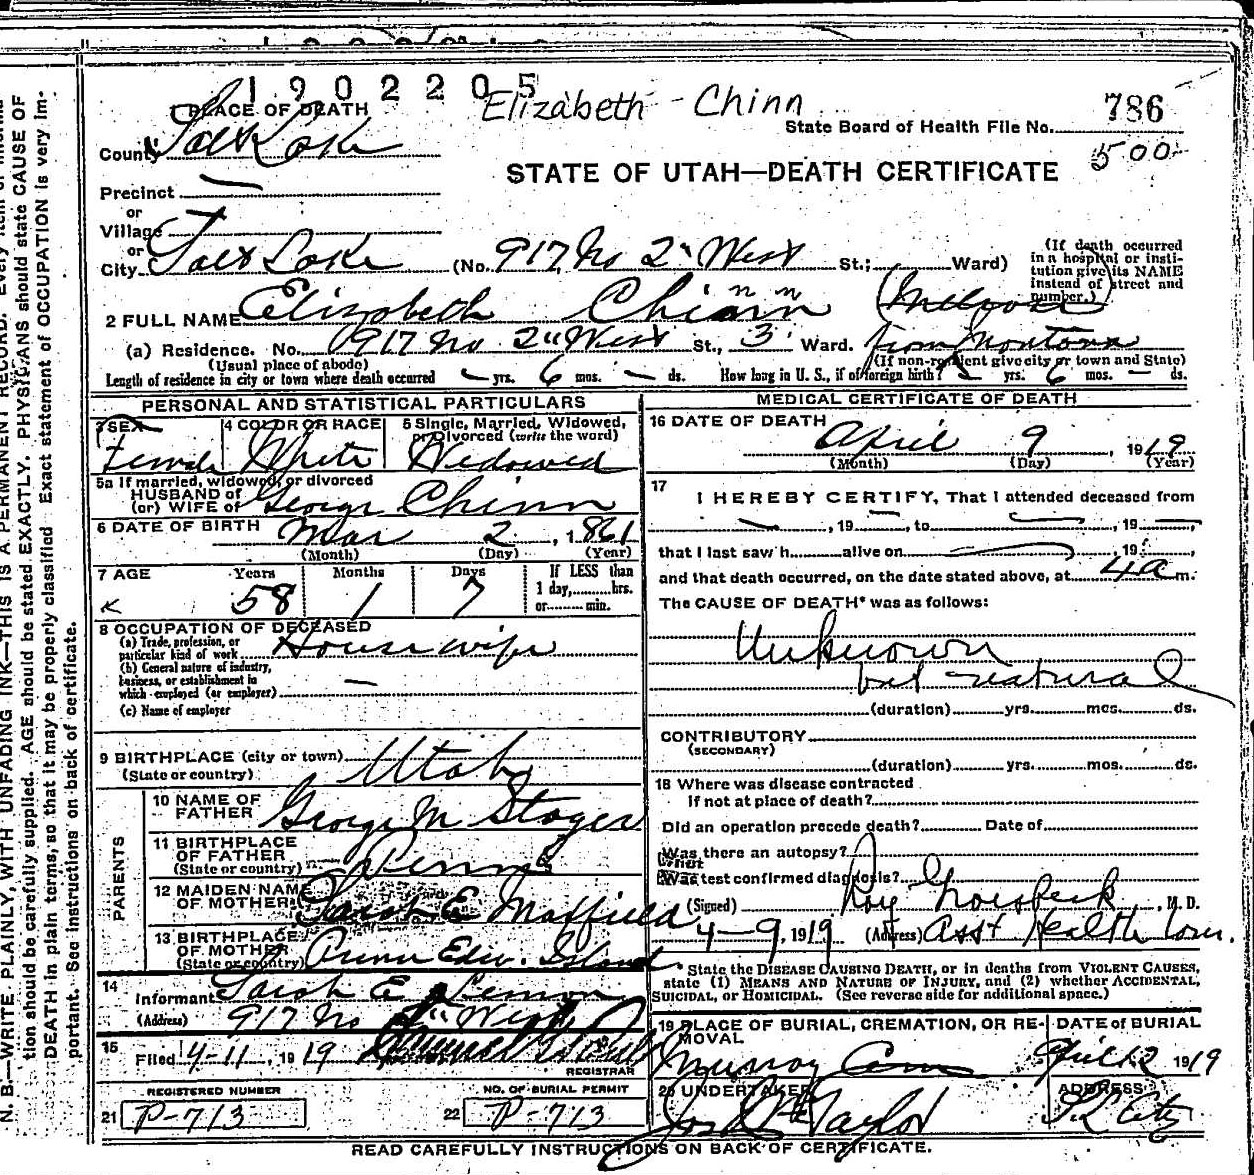 1902205
Elizabeth Chinn
786
PLACE OF DEATH
State Board of Health File No.
500
County Salt Lake
STATE OF UTAH—DEATH CERTIFICATE
Precinct
or
Village
or
City Salt Lake (No. 917 No 2" West St.; Ward)
(If death occurred
in a hospital or insti-
tution give its NAME
instead of street and
number.)
2 FULL NAME Elizabeth Chinn
(a) Residence. No. 917 No 2" West St., 3 Ward. from Montana
(Usual place of abode) (If non-resident give city or town and State)
Length of residence in city or town where death occurred yrs. 6 mos. ds. How long in U. S., if of foreign birth? yrs. 6 mos. ds.
PERSONAL AND STATISTICAL PARTICULARS
3 SEX 4 COLOR OR RACE 5 Single, Married, Widowed,
or Divorced (write the word)
Female White Widowed
5a If married, widowed, or divorced
HUSBAND of
(or) WIFE of George Chinn
6 DATE OF BIRTH Mar 2, 1861
(Month) (Day) (Year)
7 AGE Years Months Days If LESS than
1 day, hrs.
58 1 7 or min.
8 OCCUPATION OF DECEASED
(a) Trade, profession, or
particular kind of work House wife
(b) General nature of industry,
business, or establishment in
which employed (or employer)
(c) Name of employer
9 BIRTHPLACE (city or town)
(State or country) Utah
PARENTS
10 NAME OF
FATHER George M Stoger
11 BIRTHPLACE
OF FATHER
(State or country) Penn
12 MAIDEN NAME
OF MOTHER Sarah E Maffield
13 BIRTHPLACE
OF MOTHER
(State or country) Prince Edw. Island
14
Informant Sarah E Lemon
(Address) 917 No 2" West
15
Filed 4-11, 1919
REGISTRAR
REGISTERED NUMBER NO. OF BURIAL PERMIT
21 P-713 22 P-713
MEDICAL CERTIFICATE OF DEATH
16 DATE OF DEATH
April 9, 1919
(Month) (Day) (Year)
17
I HEREBY CERTIFY, That I attended deceased from
, 19 , to , 19
that I last saw h alive on , 19 ,
and that death occurred, on the date stated above, at 4 a m.
The CAUSE OF DEATH* was as follows:
Unknown
but natural
(duration) yrs. mos. ds.
CONTRIBUTORY
(SECONDARY)
(duration) yrs. mos. ds.
18 Where was disease contracted
if not at place of death?
Did an operation precede death? Date of
Was there an autopsy?
What test confirmed diagnosis?
(Signed) Roy Groesbeck, M. D.
4-9, 1919 (Address) Asst Health Com.
* State the DISEASE CAUSING DEATH, or in deaths from VIOLENT CAUSES,
state (1) MEANS AND NATURE OF INJURY, and (2) whether ACCIDENTAL,
SUICIDAL, OR HOMICIDAL. (See reverse side for additional space.)
19 PLACE OF BURIAL, CREMATION, OR RE-
MOVAL
DATE OF BURIAL
Murray Cem April 12 1919
20 UNDERTAKER ADDRESS
Jos Wm Taylor S L City
READ CAREFULLY INSTRUCTIONS ON BACK OF CERTIFICATE.
N. B.—WRITE PLAINLY, WITH UNFADING INK—THIS IS A PERMANENT RECORD. Every item of informa
tion should be carefully supplied. AGE should be stated EXACTLY. PHYSICIANS should state CAUSE OF
DEATH in plain terms, so that it may be properly classified. Exact statement of OCCUPATION is very im-
portant. See instructions on back of certificate.